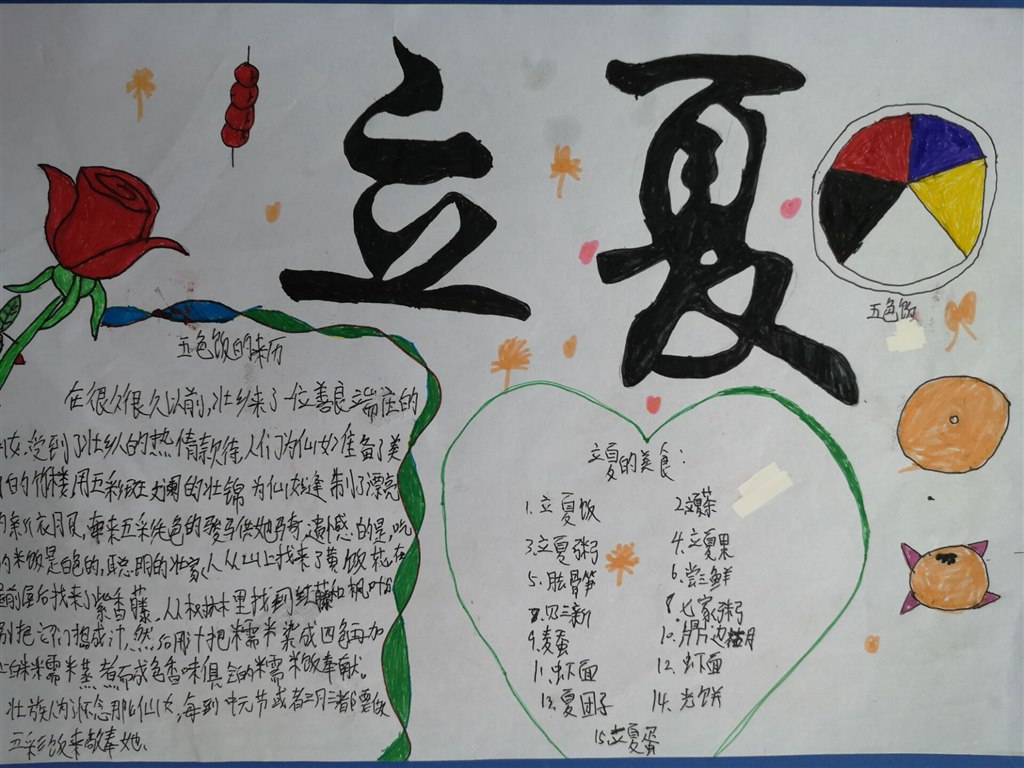 立夏
五色饭
五色饭的来历
在很久很久以前,壮乡来了一位善良端庄的
女.受到了壮乡人的热情款待,人们为仙女准备了美
的竹楼用五彩斑斓的壮锦为仙女缝制了漂亮
的新衣服,牵来五彩纯色的骏马供她骑,遗憾的是,吃
的米饭是白色的,聪明的壮家人从山上找来了黄饭花在
前屋后找来了紫香藤,从树林里找到红藤和枫叶
别把它们捣成汁,然后用汁把糯米染成四色再加
上白糯米蒸煮而成色香味俱全的糯米饭奉献。
壮族人为怀念那仙女,每到中元节或者三月三都要做
五彩饭来敬奉她.
立夏的美食:
1.立夏饭
2.立夏茶
3.立夏粥
4.立夏果
5.脚骨笋
6.尝三鲜
7.见三新
8.七家粥
9.麦蚕
11.虾面
12.虾面
13.夏团子
14.光饼
15.立夏蛋